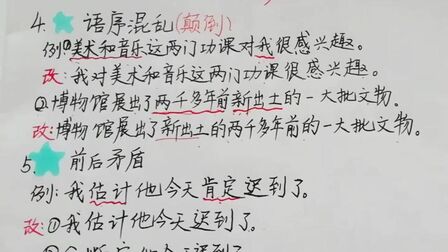 4. 语序混乱(颠倒)
例①美术和音乐这两门功课对我很感兴趣。
改:我对美术和音乐这两门功课很感兴趣。
②博物馆展出了两千多年前新出土的一大批文物。
改:博物馆展出了新出土的两千多年前的一大批文物。
5. 前后矛盾
例:我估计他今天肯定迟到了。
改:①我估计他今天迟到了。